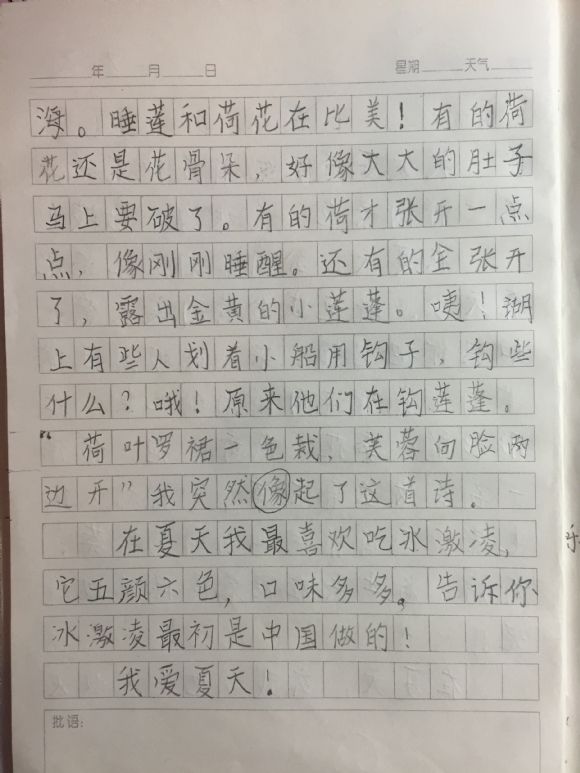 年 月 日 星期 天气
海。睡莲和荷花在比美！有的荷
花还是花骨朵，好像大大的肚子
马上要破了。有的荷才张开一点
点，像刚刚睡醒。还有的全张开
了，露出金黄的小莲蓬。咦！湖
上有些人划着小船用钩子，钩些
什么？哦！原来他们在钩莲蓬。
“荷叶罗裙一色裁，芙蓉向脸两
边开”我突然像起了这首诗。
在夏天我最喜欢吃冰激凌，
它五颜六色，口味多多。告诉你
冰激凌最初是中国做的！
我爱夏天！
批语：